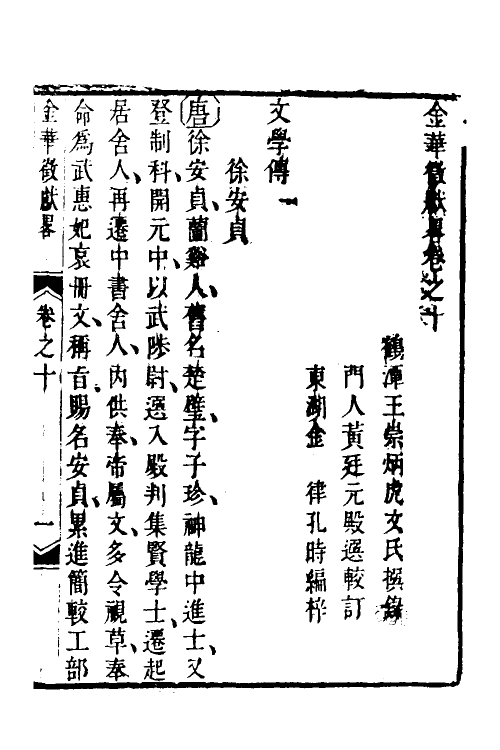 金華徵獻畧卷之十
鶴潭王崇炳虎文氏撰錄
門人黃廷元殿選較訂
東湖金　律孔時編梓
文學傳一
徐安貞
唐徐安貞蘭谿人舊名楚璧字子珍神龍中進士又
登制科開元中以武陟尉選入殿判集賢學士遷起
居舍人再遷中書舍人內供奉帝屬文多令視草奉
命爲武惠妃哀冊文稱旨賜名安貞累進簡較工部
金華徵獻畧
卷之十
一